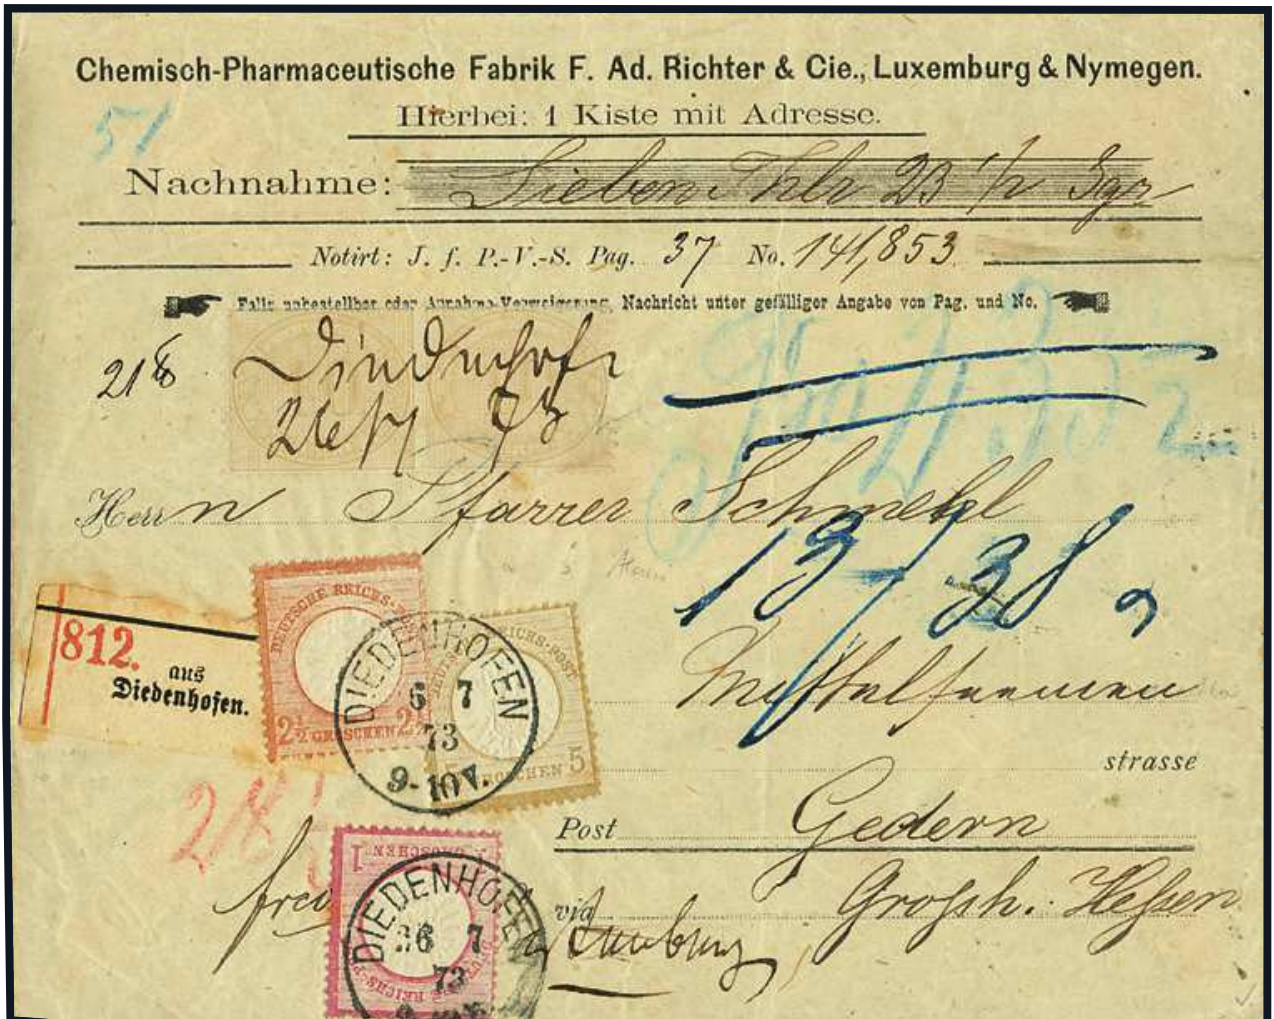 Chemisch-Pharmaceutische Fabrik F. Ad. Richter & Cie., Luxemburg & Nymegen.
Hierbei: 1 Kiste mit Adresse.
51
Nachnahme: Sieben Thlr 23 1/2 Sgr
Notirt: J. f. P.-V.-S. Pag. 37 No. 141,853
Falls unbestellbar oder Annahme-Verweigerung, Nachricht unter gefälliger Angabe von Pag. und No.
Diedenhofen
26/7 73
Herrn Pfarrer
13 38
812.
aus
Diedenhofen.
DEUTSCHE REICHS-POST
2½ GROSCHEN 2½
REICHS-POST
5 GROSCHEN 5
DIEDENHOFEN
6 7
73
9-10V.
strasse
Post Gedern
Grossh. Hessen
frei
via
1 GROSCHEN
DIEDENHOFEN
26 7
73